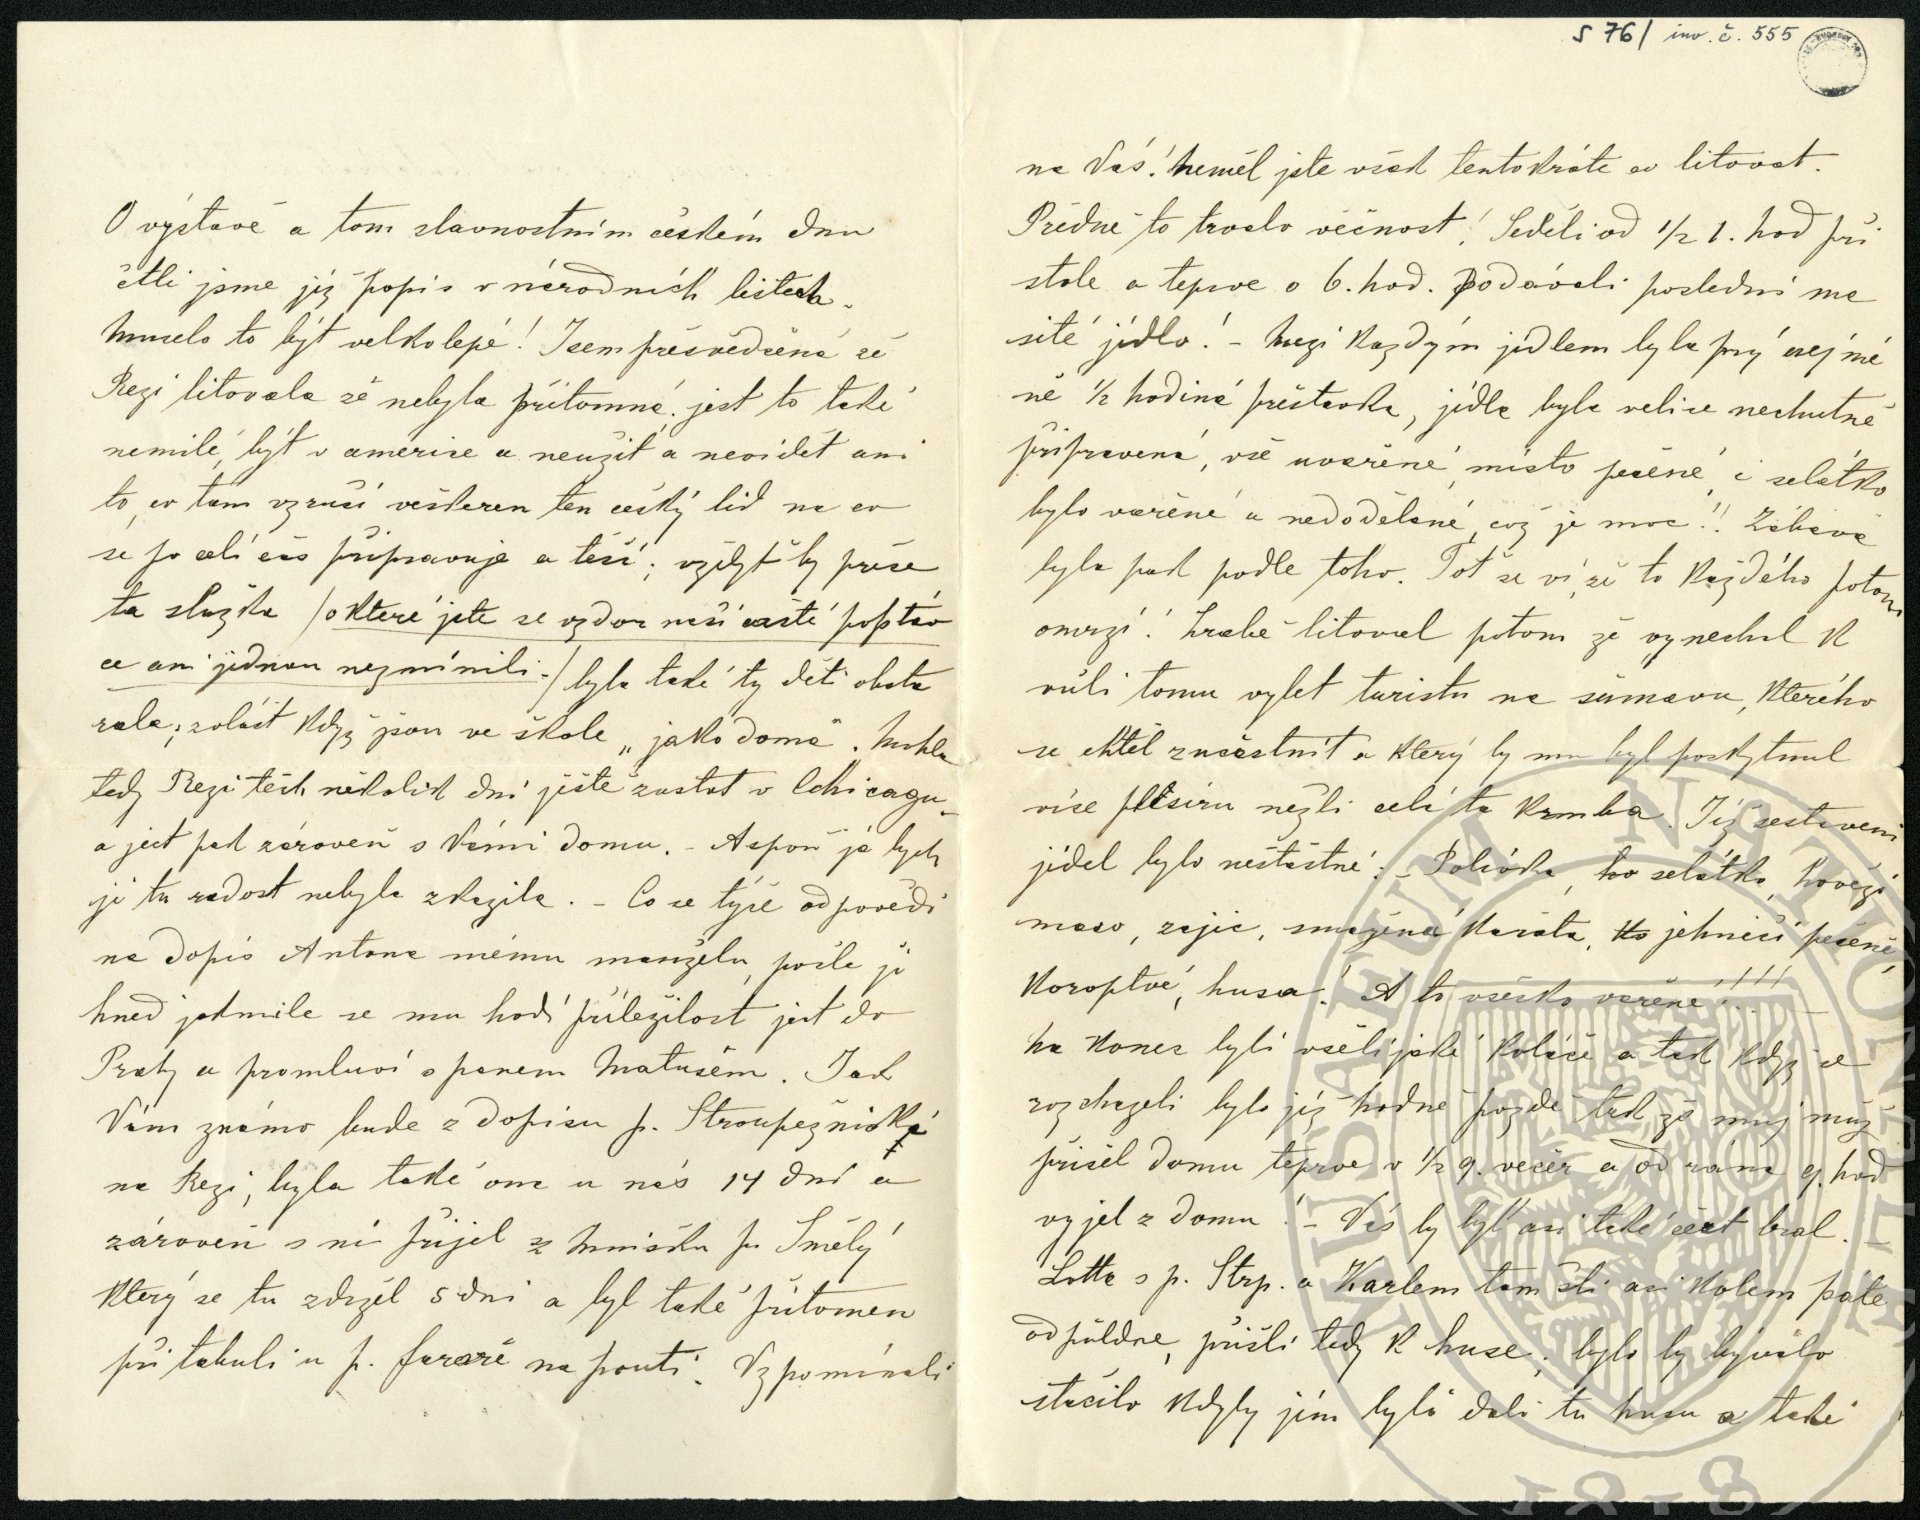 S 76/ inv. č. 555
O výstavě a tom slavnostním českém dnu
četli jsme již popis v národních listech.
Muselo to být velkolepé! Jsem přesvědčená že
Rezi litovala že nebyla přítomná; jest to také
nemilé, být v americe a neužít a nevidět ani
to, co tam vzruší veškeren ten český lid na co
se po celí čas připravuje a těší; vždyť by přece
ta služka /o které jste se vzdor naší časté poptáv
ce ani jednou nezmínili./ byla také ty děti obsta
rala; zvlášt když jsou ve škole „jako doma". Mohla
tedy Rezi těch několik dní ještě zustat v Chicagu
a jet pak zároveň s Vámi domu. - Aspoň já bych
jí tu radost nebyla zkazila. - Co se týče odpovědi
na dopis Antona mému manželu, pošle jí
hned jakmile se mu hodí příležitost jet do
Prahy a promluví s panem Matušem. Jak
Vám známo bude z dopisu p. Stroupežnické
na Rezi, byla také ona u nás 14 dní a
zároveň s ní přijel z Mníšku p. Smělý
který se tu zdržel 5 dní a byl také přítomen
při tabuli u p. faráře na pouti. Vzpomínali
na Vás! Neměl jste však tentokráte co litovat.
Předně to trvalo věčnost! Seděli od 1/2 1. hod při
stole a teprve o 6. hod. podávali poslední ma
sité jídlo! - Mezi každým jídlem byla prý nejmé
ně 1/2 hodiná přestávka, jídla byla velice nechutně
připravená, vše uvařené místo pečené, i selátko
bylo vařené a nedodělané, což je moc!! Zábava
byla pak podle toho. Toť se ví, že to každého potom
omrzí! Hrabě litoval potom že vynechal k
vůli tomu vylet turistu na šumavu, kterého
se chtěl zučastnit a který by mu byl poskytnul
více plesiru nežli celá ta Krmba. Již sestavení
jídel bylo nešťastné: - Polévka, selátko, hovězí
maso, zajíc, smažená kuřata, jehněčí pečeně,
Koroptve, husa! A to všecko vařené!!!!
Na konec byli všelijaké koláče a tak když se
rozcházeli bylo již hodně pozdě tak že muj muž
přišel domu teprve v 1/2 9. večer a od rána 9. hod
vyjel z domu! - Vás by byl asi také čert bral.
Lotta s p. Strp. a Karlem tam šli asi kolem páté
odpůldne, přišli tedy k huse; bylo by bývalo
stačilo kdyby jim byli dali tu husu a také